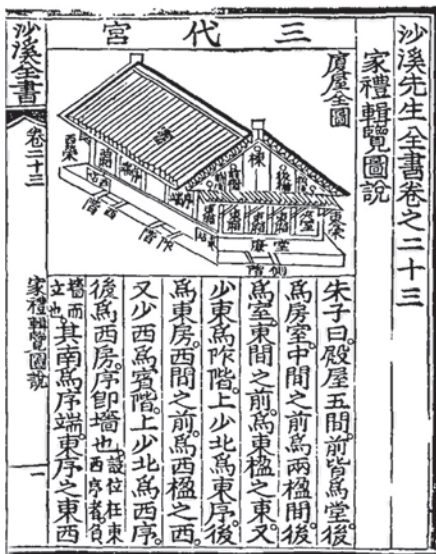 沙溪先生全書卷之二十三
家禮輯覽圖說
三代宮
廈屋全圖
棟
後楣
東榮
西榮
堂廉
側階
西階
阼階
朱子曰。殿屋五間。前皆爲堂。後
爲房室。中間之前爲兩楹間。後
爲室。東間之前。爲東楹之東。又
少東爲阼階。上少北爲東序。後
爲東房。西間之前爲西楹之西。
又少西爲賓階。上少北爲西序。
後爲西房。序卽墻也。設位在東西序者。負
墻而立也。其南爲序端。東序之東西
沙溪全書
卷二十三
家禮輯覽圖說
一